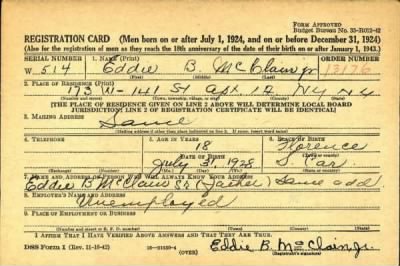 FORM APPROVED
Budget Bureau No. 33-R012-42
REGISTRATION CARD (Men born on or after July 1, 1924, and on or before December 31, 1924)
(Also for the registration of men as they reach the 18th anniversary of the date of their birth on or after January 1, 1943.)
SERIAL NUMBER
1. NAME (Print)
ORDER NUMBER
W 514
Eddie B. McClain jr
13176
(First) (Middle) (Last)
2. PLACE OF RESIDENCE (Print)
173 W-141 St apt. 1A. N.Y N.Y.
[THE PLACE OF RESIDENCE GIVEN ON LINE 2 ABOVE WILL DETERMINE LOCAL BOARD
JURISDICTION; LINE 2 OF REGISTRATION CERTIFICATE WILL BE IDENTICAL]
3. MAILING ADDRESS
Same
[Mailing address if other than place indicated on line 2. If same, insert word same]
4. TELEPHONE
5. AGE IN YEARS
6. PLACE OF BIRTH
18
Florence
DATE OF BIRTH
July 31, 1928
S. Car.
7. NAME AND ADDRESS OF PERSON WHO WILL ALWAYS KNOW YOUR ADDRESS
Eddie B McClain Sr (Father) Same add
8. EMPLOYER'S NAME AND ADDRESS
Unemployed
9. PLACE OF EMPLOYMENT OR BUSINESS
I AFFIRM THAT I HAVE VERIFIED ABOVE ANSWERS AND THAT THEY ARE TRUE.
DSS Form 1 (Rev. 11-16-42)
(OVER)
Eddie B. McClain jr.
(Registrant's signature)